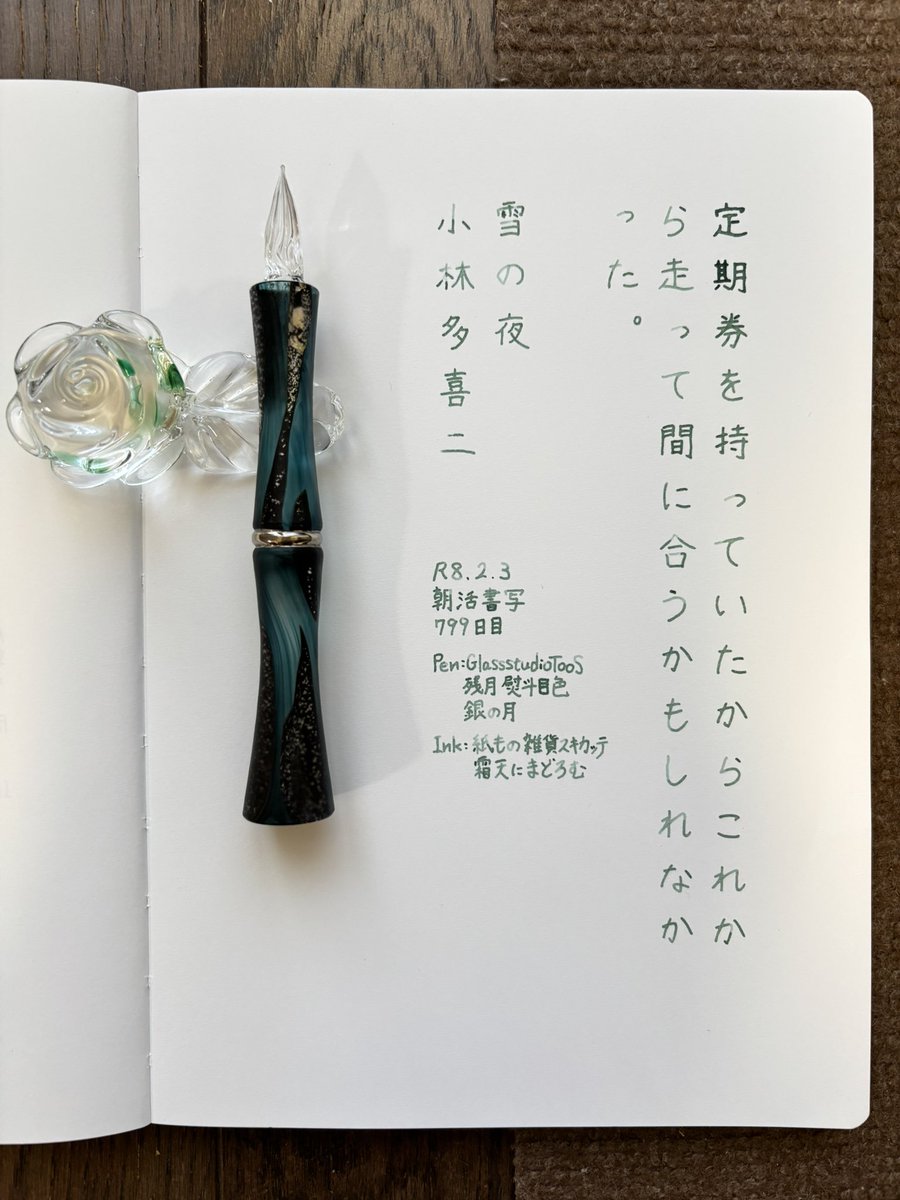 定期券を持っていたからこれか
ら走って間に合うかもしれなか
った。
雪の夜
小林多喜二
R8.2.3
朝活書写
799日目
Pen:GlassstudioTooS
残月 熨斗目色
銀の月
Ink:紙もの雑貨スキカッテ
霜天にまどろむ